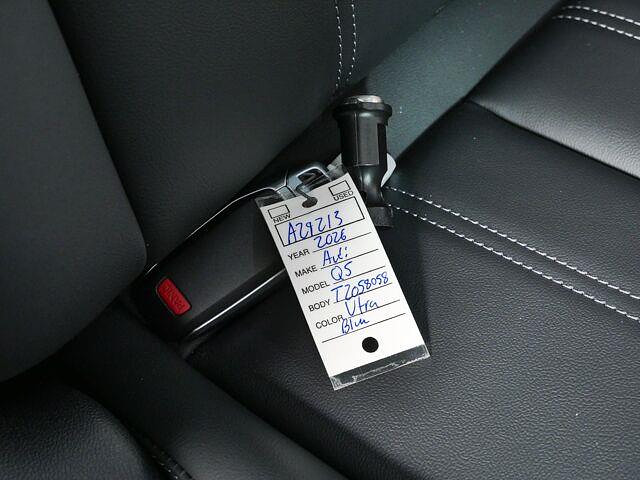 NEW USED
A29213
YEAR 2026
MAKE Audi
MODEL Q5
BODY T2058058
COLOR Ultra
Blue